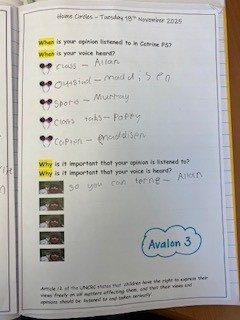 Home Circles – Tuesday 18th November 2025
When is your opinion listened to in Catrine PS?
When is your voice heard?
class – Allan
outsind – maddison
Sport – Murray
class jobs – Poppy
Capten – maddison
Why is it important that your opinion is listened to?
Why is it important that your voice is heard?
so you can – Allan
Avalon 3
Article 12 of the UNCRC states that 'children have the right to express their
views freely on all matters affecting them, and that their views and
opinions should be listened to and taken seriously'